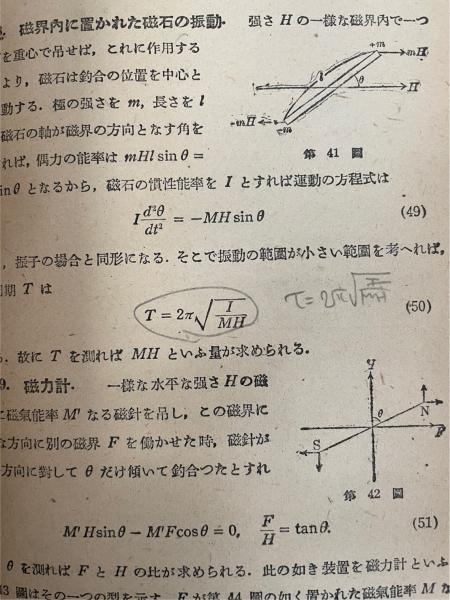 磁界内に置かれた磁石の振動. 強さ H の一様な磁界内で一つ
を重心で吊せば，これに作用する
より，磁石は釣合の位置を中心と
動する．極の强さを m，長さを l
磁石の軸が磁界の方向となす角を
れば，偶力の能率は mHl sin θ =
sin θ となるから，磁石の慣性能率を I とすれば運動の方程式は
+m mH
l θ H
-mH -m
第 41 圖
I d²θ/dt² = −MH sin θ (49)
，振子の場合と同形になる．そこで振動の範圍が小さい範圍を考へれば，
期 T は
T = 2π√(I/MH) (50)
τ = 2π√(I/MH)
．故に T を測れば MH といふ量が求められる．
9. 磁力計． 一樣な水平な强さ H の磁
に磁氣能率 M′ なる磁針を吊し，この磁界に
な方向に別の磁界 F を働かせた時，磁針が
方向に對して θ だけ傾いて釣合つたとすれ
H
θ N
S F
第 42 圖
M′H sin θ − M′F cos θ = 0, F/H = tan θ. (51)
θ を測れば F と H の比が求められる．此の如き裝置を磁力計といふ
43 圖はその一つの型を示す．F が第 44 圖の如く置かれた磁氣能率 M な